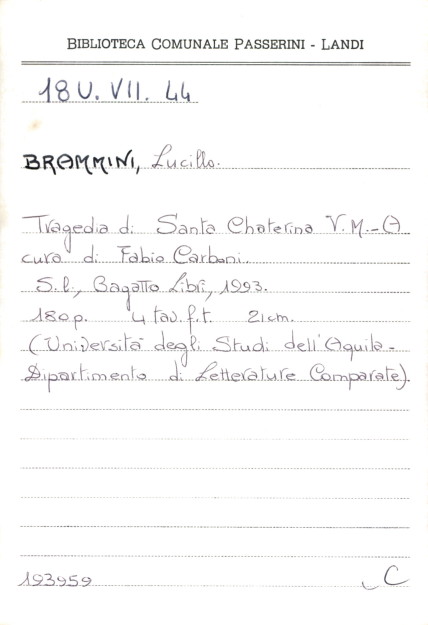 BIBLIOTECA COMUNALE PASSERINI - LANDI
18 U. VII. 44
BRAMMINI, Lucillo.
Tragedia di Santa Chaterina V.M.-A
cura di Fabio Carboni.
S.l., Bagatto Libri, 1993.
180p. 4 tav. f.t. 21cm.
(Università degli Studi dell'Aquila-
Dipartimento di Letterature Comparate).
193959 C